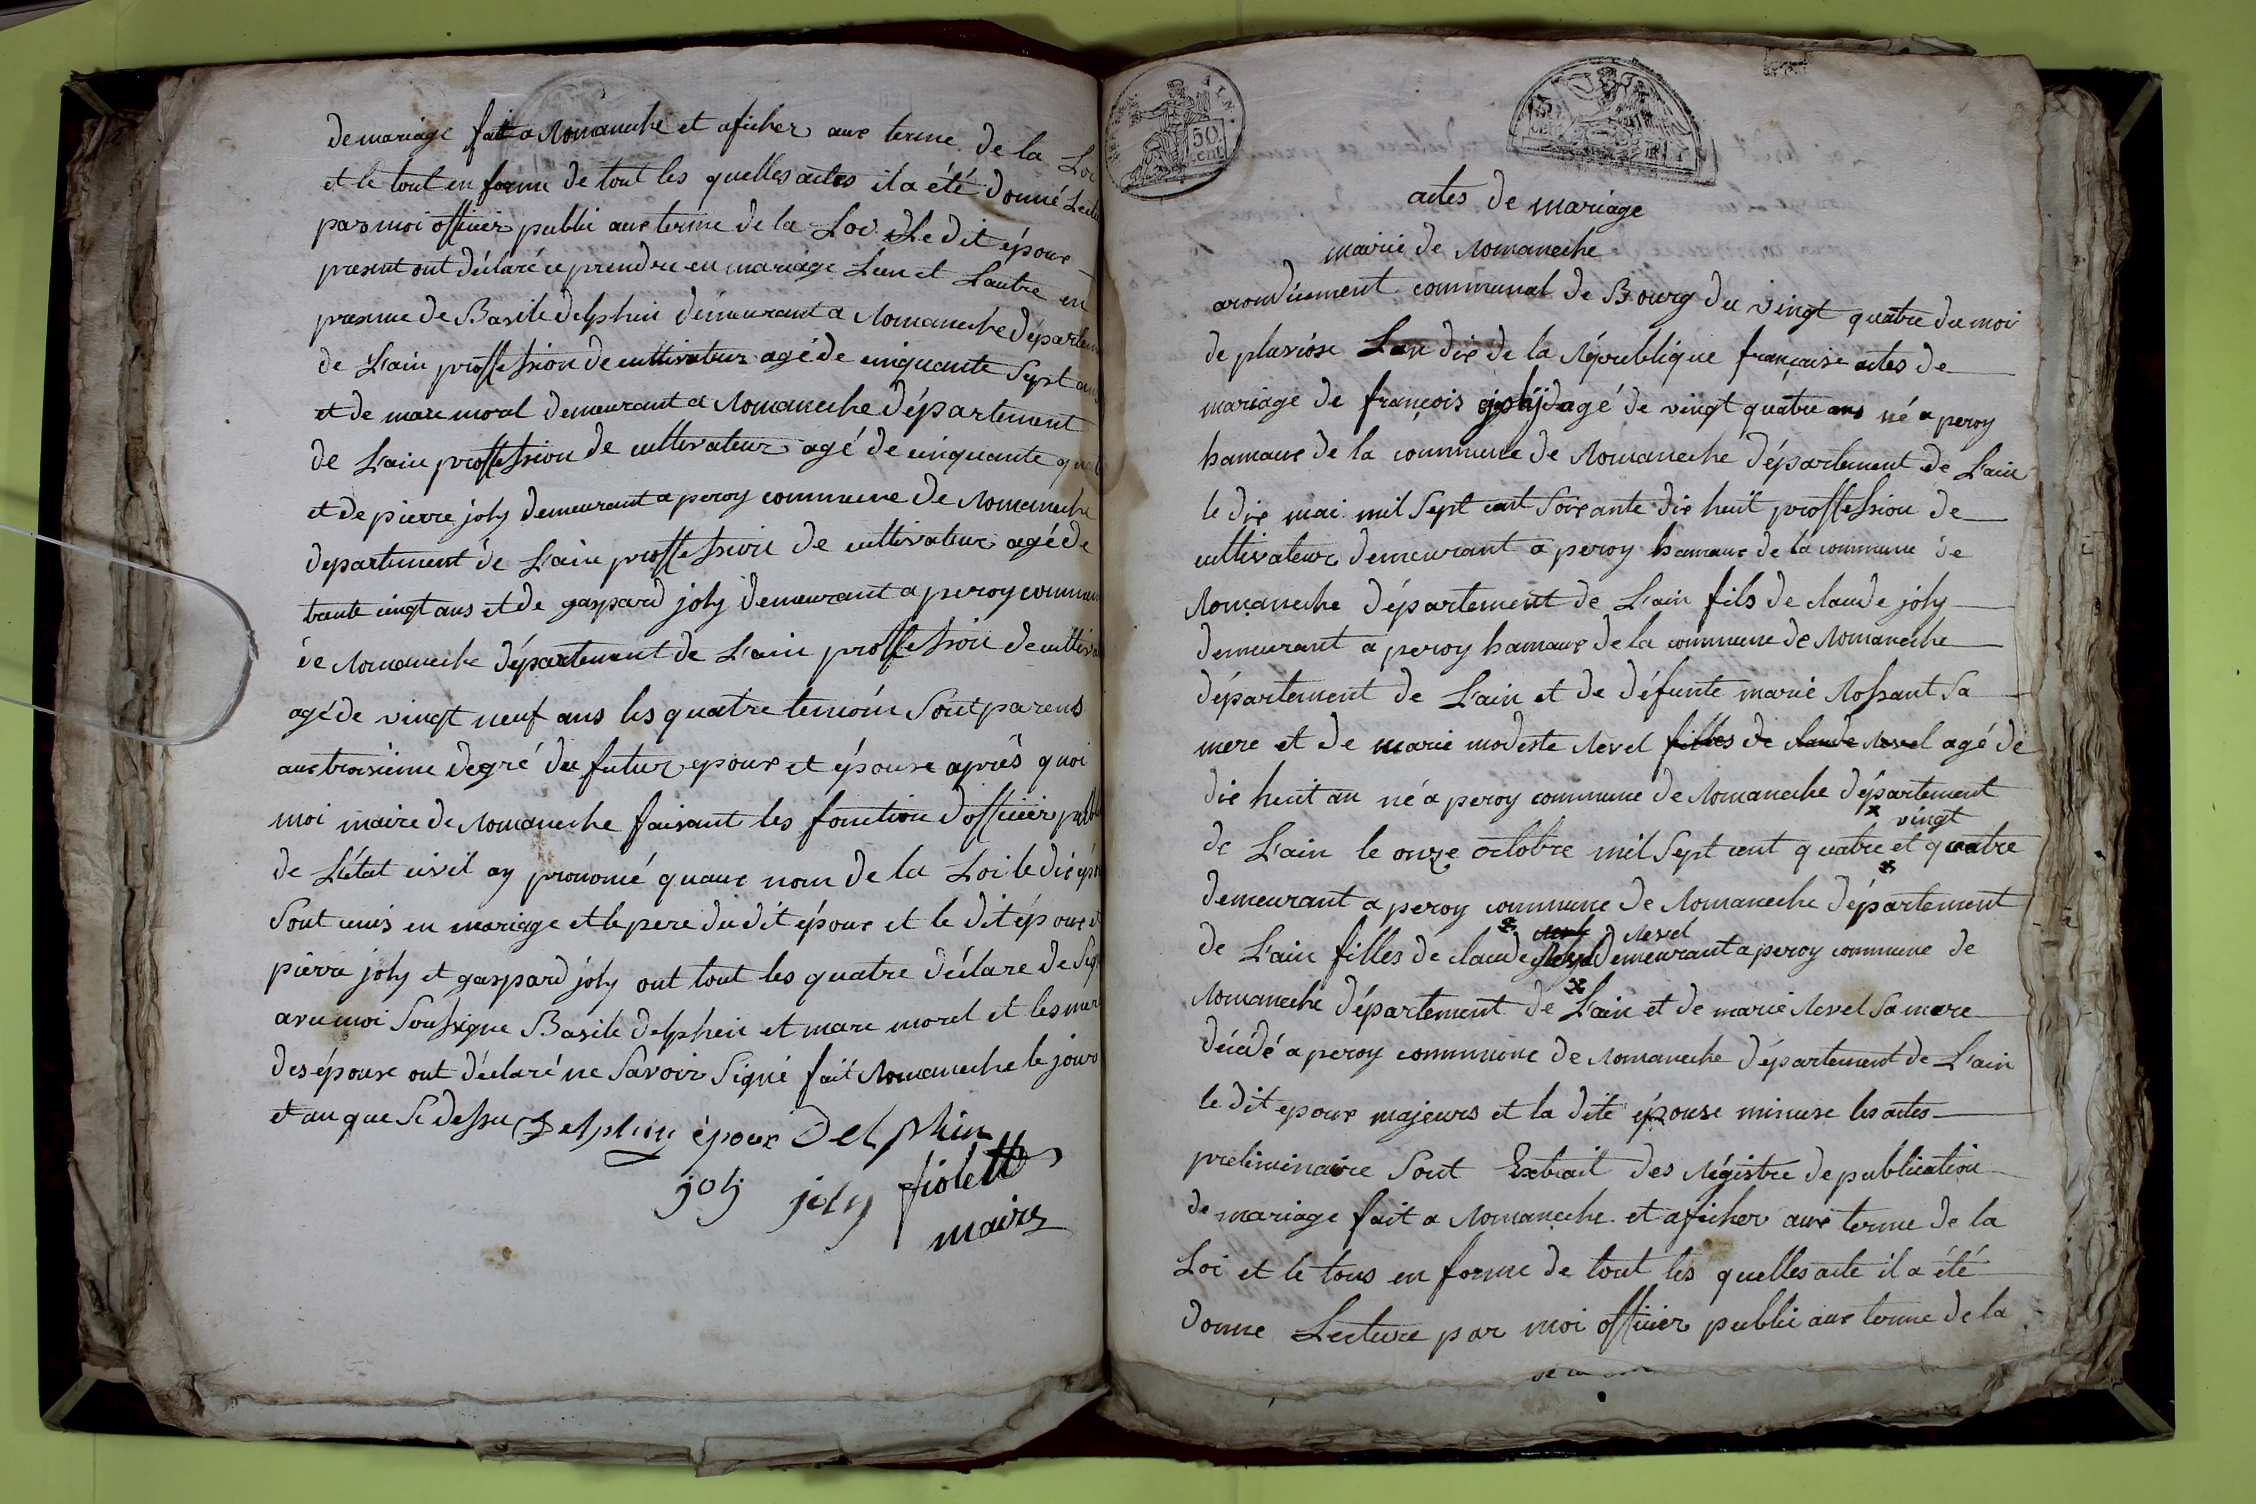 de mariage fait a Romaneche et aficher aux terme de la Loi
et le tout en forme de tout les quelles actes il a été donné Lectu
par moi officier public aux terme de la Loi Le dit époux
present ont déclaré ce prendre en mariage L'un et Lautre en
presence de Basile delphin demeurant a Romaneche départem
de L'ain proffession de cultivateur agé de cinquante Sept ans
et de marc moral demeurant a Romaneche département
de L'ain proffession de cultivateur agé de cinquante
et de pierre joly demeurant a peroy commune de Romaneche
departement de L'ain proffession de cultivateur agé de
trante cinqt ans et de gaspard joly demeurant a peroy commun
de Romaneche département de L'ain proffession de cultiva
agé de vingt neuf ans les quatre temoin Sont parens
aux troisième degré du futur epoux et épouse après quoi
moi maire de Romaneche faisant les fonction d'officier publi
de L'état civil ay prononcé quaux nom de la Loi le dit épo
Sont unis en mariage et le pere du dit époux et le dit époux et
pierre joly et gaspard joly ont tout les quatre déclare de Sig
avec moi Soussigne Basile delphin et marc morel et les mer
des épouse ont déclaré ne Savoir Signé fait Romaneche le jour
et an que Si dessu Delphin époux Delphin
joly joly fiolett
maire
50 cent
25 cent
actes de mariage
mairie de Romaneche
arondicement communal de Bourg du vingt quatre du moi
de pluviose Lan dix de la République française actes de
mariage de françois joly agé de vingt quatre ans né a peroy
hamaux de la commune de Romaneche département de L'ain
le dix mai mil Sept cent Soixante dix huit proffession de
cultivateur demeurant a peroy hamaux de la commune de
Romaneche département de L'ain fils de claude joly
demeurant a peroy hamaux de la commune de Romaneche
département de L'ain et de défunte marie Rossant Sa
mere et de marie modeste Revel filles de claude Revel agé de
dix huit an né a peroy commune de Romaneche département
x vingt
de L'ain le onze octobre mil Sept cent quatre et quatre
demeurant a peroy commune de Romaneche département
Revel
de L'ain filles de claude demeurant a peroy commune de
Romaneche département de L'ain et de marie Revel Sa mere
décédé a peroy commune de Romaneche département de L'ain
le dit epoux majeurs et la dite épouse mineure les actes
preliminaire Sont Extrait des Régistre de publication
de mariage fait a Romaneche et aficher aux terme de la
Loi et le tous en forme de tout les quelles acte il a été
donne Lecture par moi officier public aux terme de la